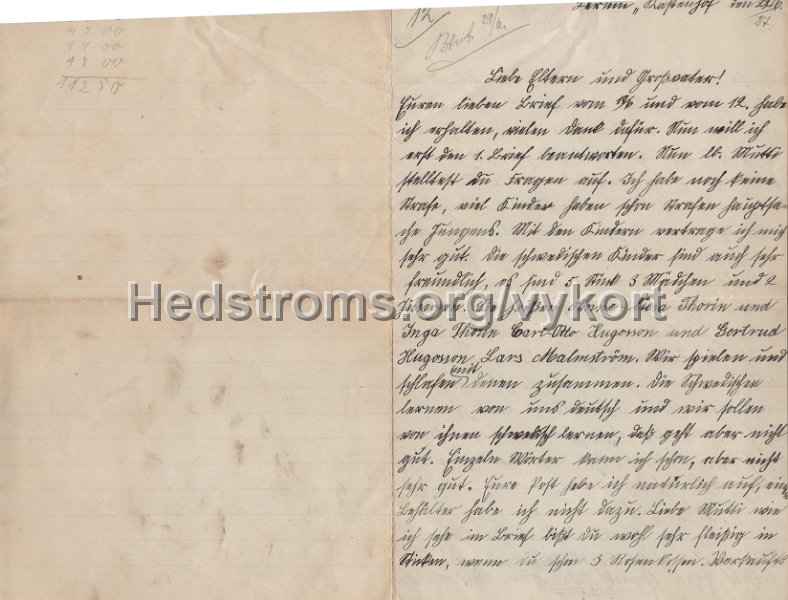 45 00
14 00
15 00
112 50
12
29/6.
"Kastenhof" den 27.6.
37.
Liebe Eltern und Großvater!
Euren lieben Brief vom und vom 12. habe
ich erhalten, vielen Dank dafür. Nun will ich
erst den 1. Brief beantworten. Nun lb. Mutti
stelltest du Fragen auf. Ich habe noch keine
Strafe, viel Kinder haben schon Strafen hauptsä-
che Jungens. Mit den Kindern vertrage ich mich
sehr gut. Die schwedischen Kinder sind auch sehr
freundlich, es sind 5 Stück 3 Mädchen und 2
Jungen. Sie heißen Thorin und
Hedstroms.org/vykort
Inga Thorin Carl-Otto Hugosson und Gertrud
Hugosson, Lars Malmström. Wir spielen und
schlafen mit denen zusammen. Die Schwedischen
lernen von uns deutsch und wir sollen
von ihnen schwedisch lernen, daß geht aber nicht
gut. Einzeln Wörter kann ich schon, aber nicht
sehr gut. Eure Post hebe ich natürlich auf, ein
Behälter habe ich nicht dazu. Liebe Mutti wie
ich sehe im Brief bißt du wohl sehr fleißig in
Sticken, wenn du schon 3 Rosenkissen. Verkaufts